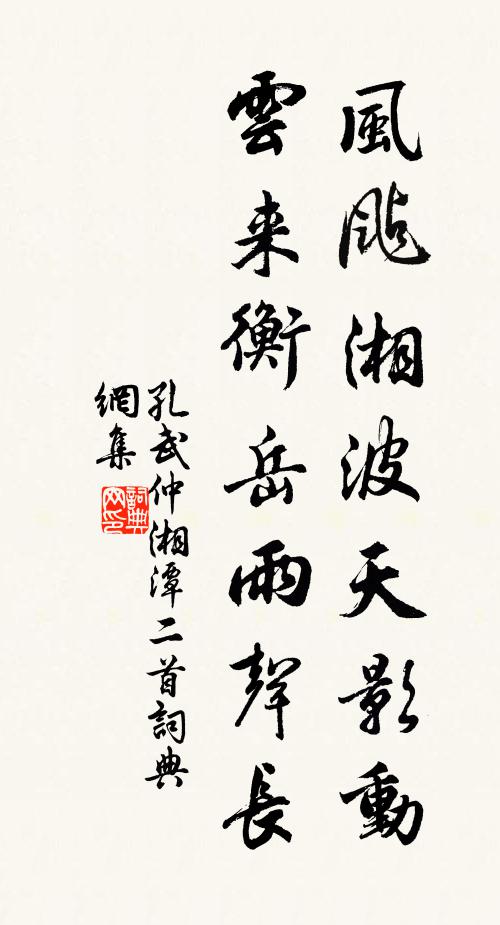 風颭湘波天影動
雲来衡岳雨聲長
孔武仲湘潭二首詞典
網集
詞典
网印